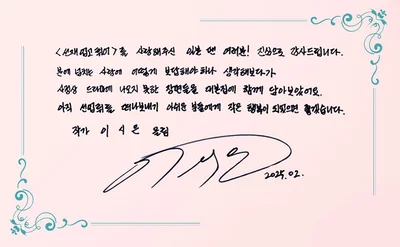 <선재 업고 튀어>를 사랑해주신 이클립스 여러분! 진심으로 감사드립니다.
분에 넘치는 사랑에 어떻게 보답해야하나 생각해보다가
드라마에 나오지 못한 장면들을 대본집에 함께 담아보았어요.
아직 선업튀를 떠나보내기 아쉬운 분들에게 작은 행복이 되었으면 좋겠습니다.
작가 이시은 올림
2025.02.